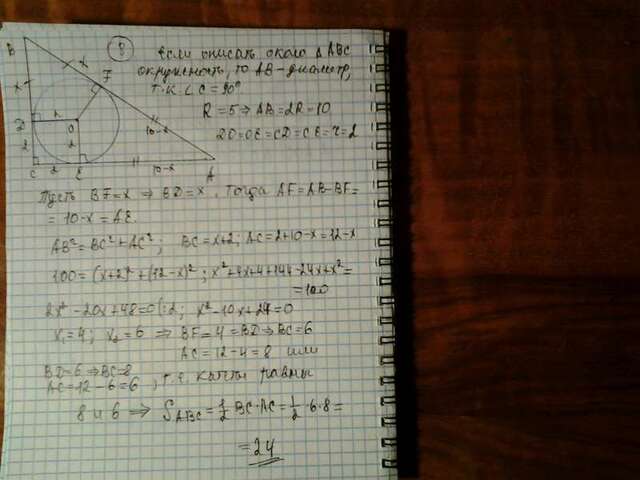 8
Если описать около △ABC
окружность, то AB-диаметр,
т.к ∠C=90°
R=5⇒AB=2R=10
DO=OE=CD=CE=r=2
B
x
x
F
D
2
O
2
2
10-x
C
2
E
10-x
A
Пусть BF=x ⇒ BD=x. Тогда AF=AB-BF=
=10-x=AE.
AB²=BC²+AC²; BC=x+2; AC=2+10-x=12-x
100=(x+2)²+(12-x)²; x²+4x+4+144-24x+x²=
=100
2x²-20x+48=0|:2; x²-10x+24=0
x₁=4; x₂=6 ⇒ BF=4=BD⇒BC=6
AC=12-4=8 или
BD=6⇒BC=8
AC=12-6=6, т.е. катеты равны
8 и 6 ⇒ S_ABC=1/2 BC·AC=1/2·6·8=
=24